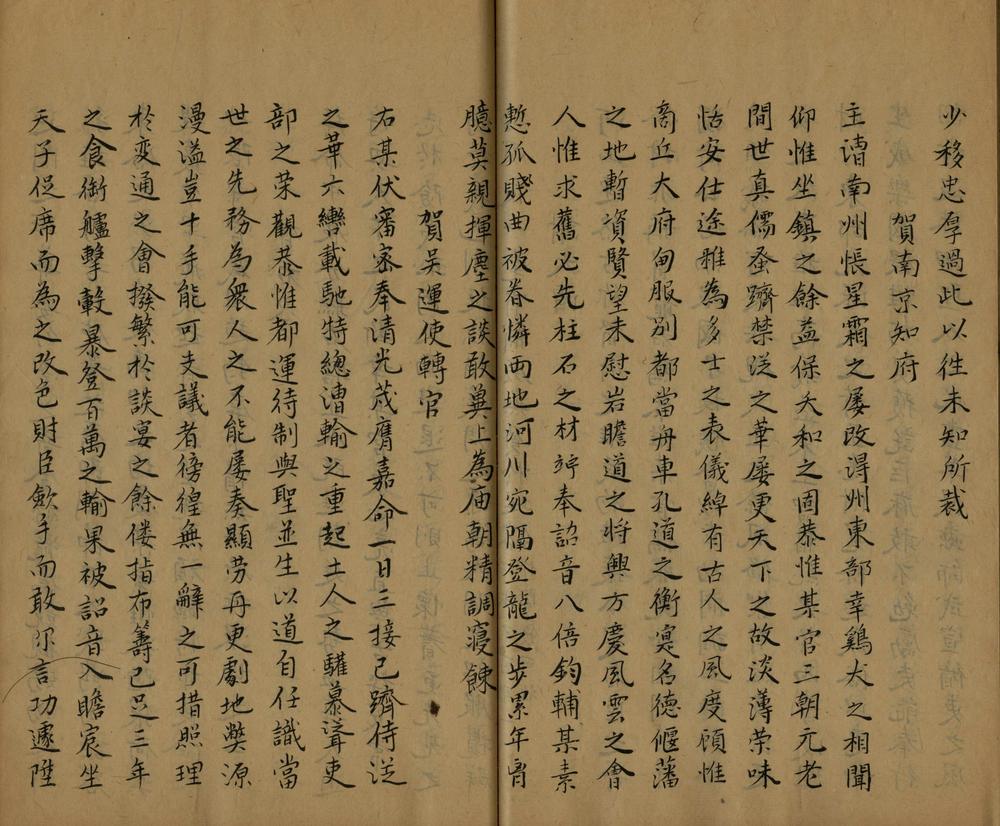 少移忠厚過此以徃未知所裁
賀南京知府
主谞南州悵星霜之屡改淂州東部幸鷄犬之相聞
仰惟坐鎮之餘益保夭和之固恭惟某官三朝元老
間世真儒蚤躋禁㳂之華屡更天下之故淡薄荣味
恬安仕途雅為多士之表儀綽有古人之風度顧惟
商丘大府甸服别都當舟車孔道之衡寔名德偃藩
之地暫資賢望未慰岩瞻道之将興方慶風雲之會
人惟求舊必先柱石之材竚奉詔音八倍鈞輔某素
慙孤賤曲被眷憐兩地河川宛隔登龍之步累年胷
臆莫親揮麈之談敢兾上為庙朝精調寝餗
賀吴運使轉官
右某伏審宻奉清光茂膺嘉命一日三接已躋侍㳂
之華六轡載馳特總漕輸之重起士人之驩慕聳吏
部之荣觀恭惟都運待制與聖並生以道自任識當
世之先務為衆人之不能屡奏顯劳再更劇地獘源
漫溢豈十手能可支議者徬徨無一辭之可措照理
於变通之會撥繁於談宴之餘偻指布籌已足三年
之食衘艫擊轂暴登百萬之輸果被詔音入瞻宸坐
天子促席而為之改色財臣歛手而敢尔言功遽陞